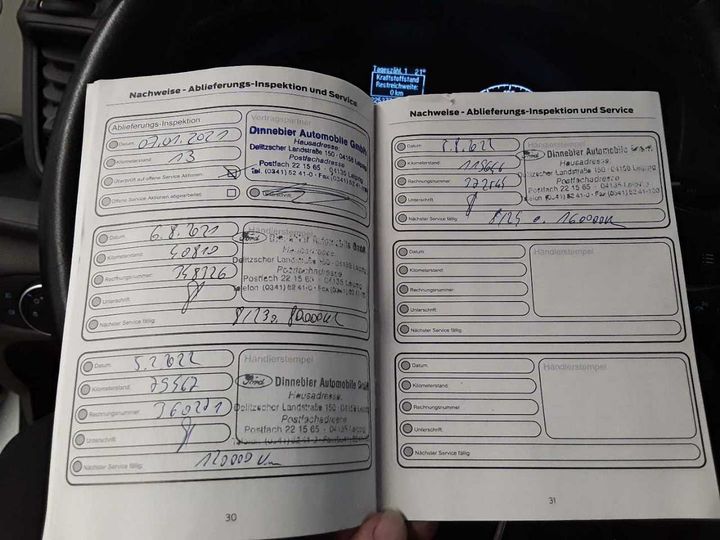 Tageszähl. 1 21°
Kraftstoffstand
Restreichweite:
0 km
Nachweise - Ablieferungs-Inspektion und Service
Ablieferungs-Inspektion
Datum 07.01.2021
Kilometerstand 13
Überprüft auf offene Service Aktionen
Offene Service Aktionen abgearbeitet
Vertragspartner
Dinnebier Automobile GmbH
Hausadresse:
Delitzscher Landstraße 150 · 04158 Leipzig
Postfachadresse
Postfach 22 15 65 · 04135 Leipzig
Tel. (0341) 52 41-0 · Fax (0341) 52 41
Datum 6.8.2021
Kilometerstand 40810
Rechnungsnummer 348326
Unterschrift
Nächster Service fällig 8/23 o. 80000 km
Händlerstempel
Ford
Hausadresse
Delitzscher Landstraße 150 · 04158 Leipzig
Postfachadresse
Postfach 22 15 65 · 04135 Leipzig
Telefon (0341) 52 41-0 · Fax (0341) 52 41
Datum 5.2.2022
Kilometerstand: 79567
Rechnungsnummer 360271
Unterschrift
Nächster Service fällig: 120000 km
Händlerstempel
Ford Dinnebier Automobile GmbH
Hausadresse:
Delitzscher Landstraße 150 · 04158 Leipzig
Postfachadresse
Postfach 22 15 65 · 04135 Leipzig
30
Nachweise - Ablieferungs-Inspektion und Service
Datum 8.8.2022
Kilometerstand
Rechnungsnummer 372545
Unterschrift
Nächster Service fällig 8/24 o. 160000 km
Ford Dinnebier Automobile GmbH
Hausadresse:
Delitzscher Landstraße 150 · 04158 Leipzig
Postfachadresse
Postfach 22 15 65 · 04135 Leipzig
Datum
Kilometerstand
Rechnungsnummer
Unterschrift
Nächster Service fällig
Händlerstempel
Datum
Kilometerstand:
Rechnungsnummer
Unterschrift
Nächster Service fällig
Händlerstempel
31